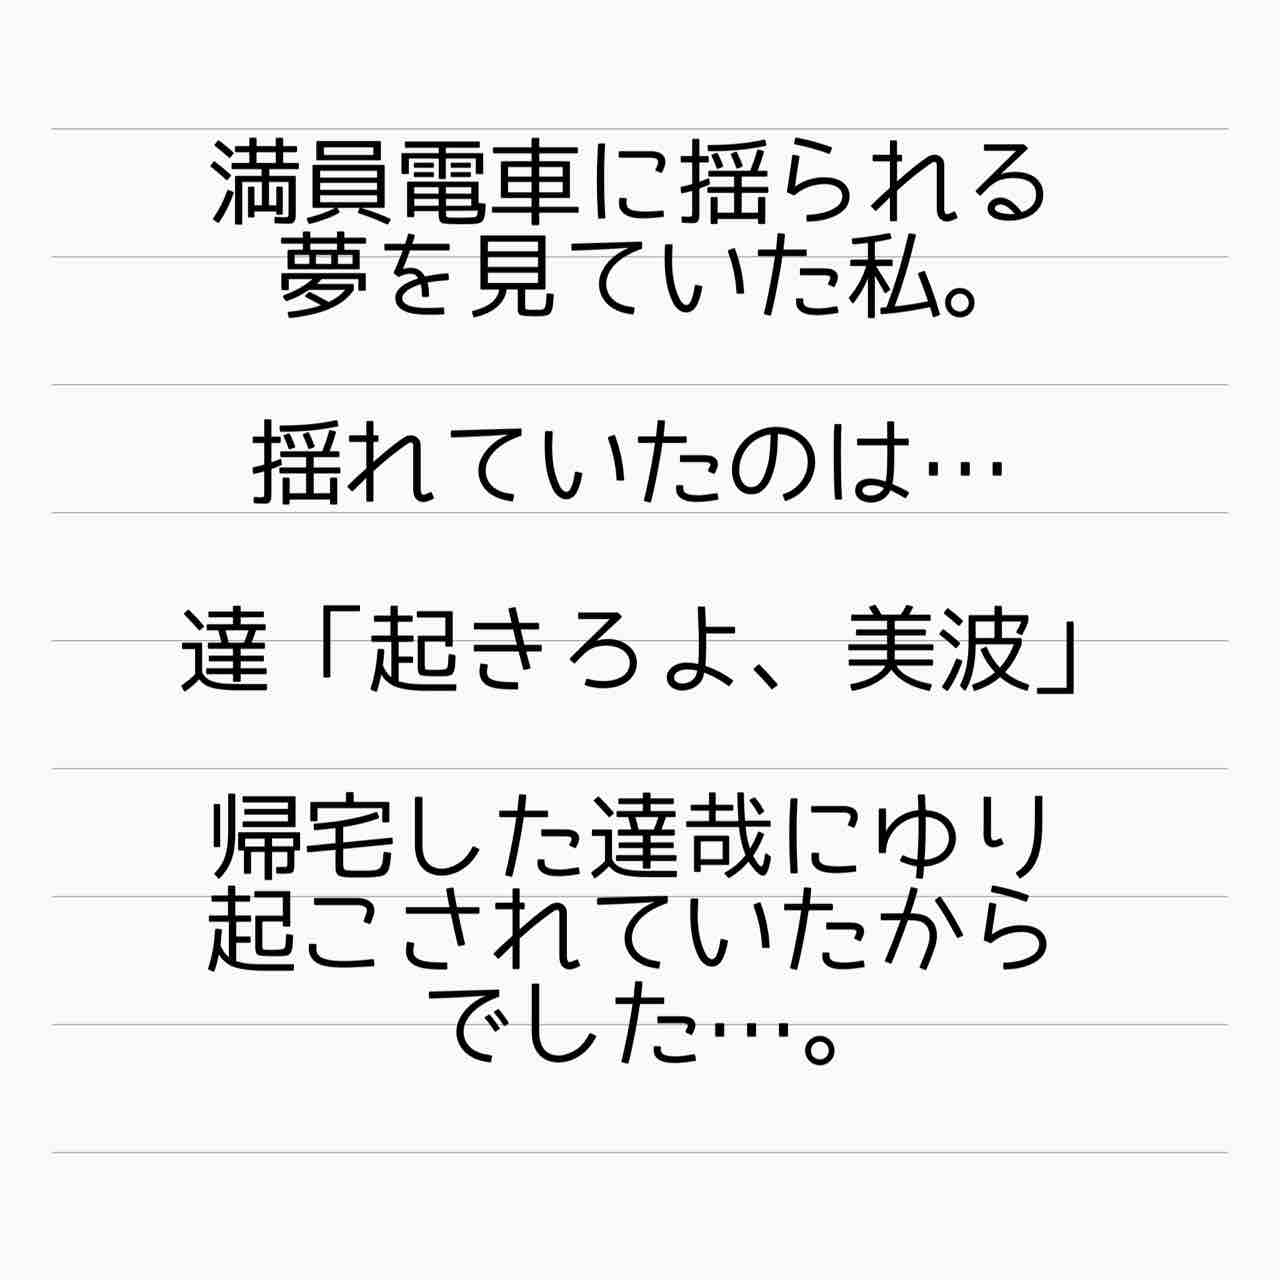 満員電車に揺られる
夢を見ていた私。
揺れていたのは…
達「起きろよ、美波」
帰宅した達哉にゆり
起こされていたから
でした…。